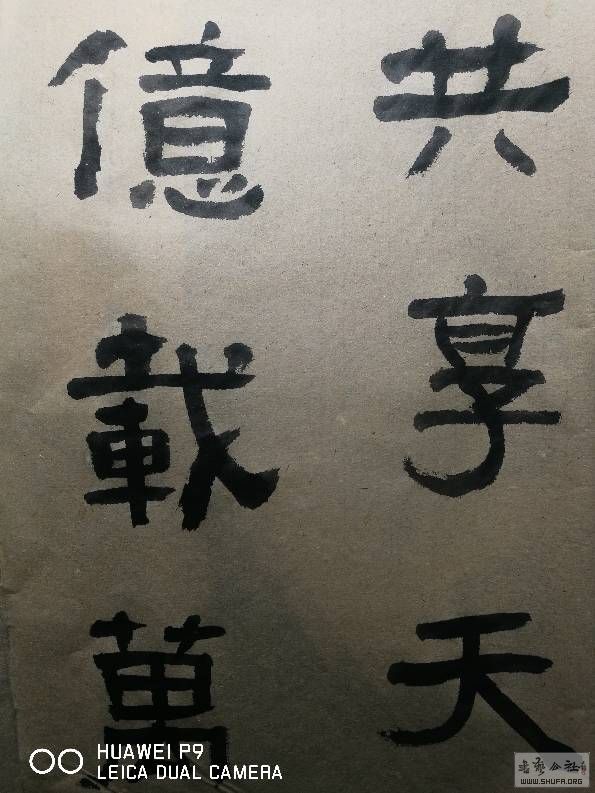 共享天
億載萬
HUAWEI P9
LEICA DUAL CAMERA
书艺公社
WWW.SHUFA.ORG